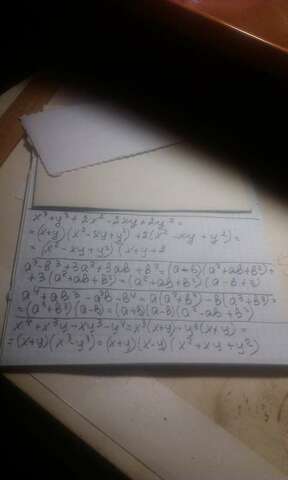 x³+y³+2x²-2xy+2y²=
=(x+y)(x²-xy+y²)+2(x²-xy+y²)=
=(x²-xy+y²)(x+y+2
a³-b³+3a²+3ab+b²=(a-b)(a²+ab+b²)+
+3(a²+ab+b²)=(a²+ab+b²)(a-b+3)
a⁴+ab³-a³b-b⁴=a(a³+b³)-b(a³+b³)=
=(a³+b³)(a-b)=(a+b)(a-b)(a²-ab+b²)
x⁴+x³y-xy³-y⁴=x³(x+y)-y³(x+y)=
=(x+y)(x³-y³)=(x+y)(x-y)(x²+xy+y²)